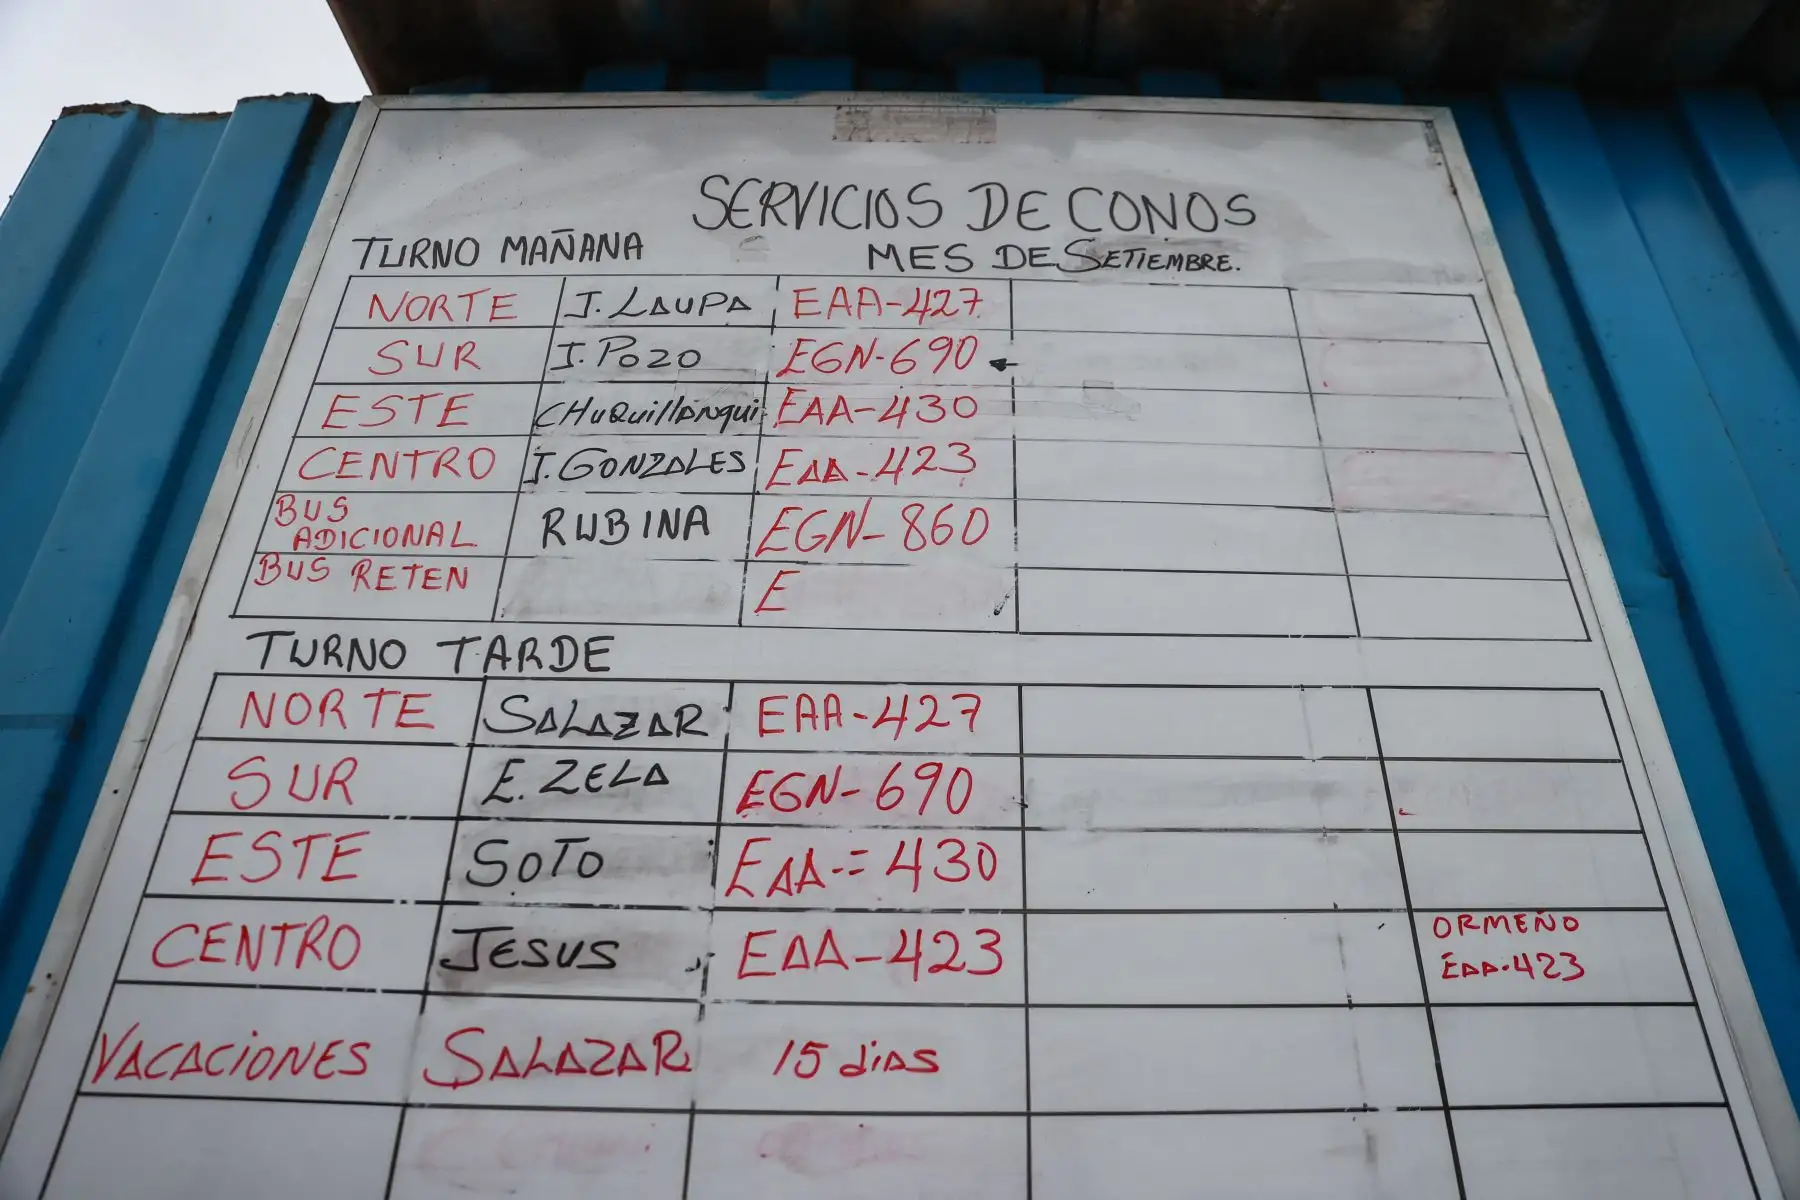 SERVICIOS DE CONOS
TURNO MAÑANA MES DE SETIEMBRE.
NORTE J. LAUPA EAA-427
SUR J. POZO EGN-690
ESTE CHUQUILLANQUI EAA-430
CENTRO J. GONZALES EAA-423
BUS ADICIONAL RUBINA EGN-860
BUS RETEN E
TURNO TARDE
NORTE SALAZAR EAA-427
SUR E. ZELA EGN-690
ESTE SOTO EAA-=430
CENTRO JESUS EAA-423 ORMEÑO
EAA-423
VACACIONES SALAZAR 15 dias